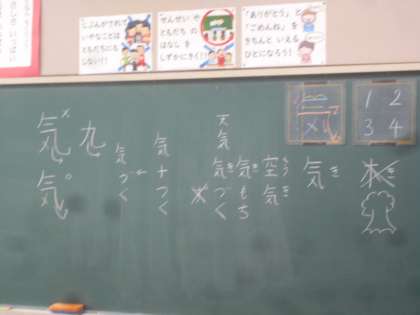 じぶんがされて
いやなことは
ともだちにも
しない!!
せんせい や
ともだち の
はなし を
しずかにきく!!
「ありがとう」と
「ごめんね」を
きちんと いえる
ひとになろう!
1 2
3 4
木
気き
空気くうき
気きもち
天気
気きづく
気+つく
気づく
九
気×
気○